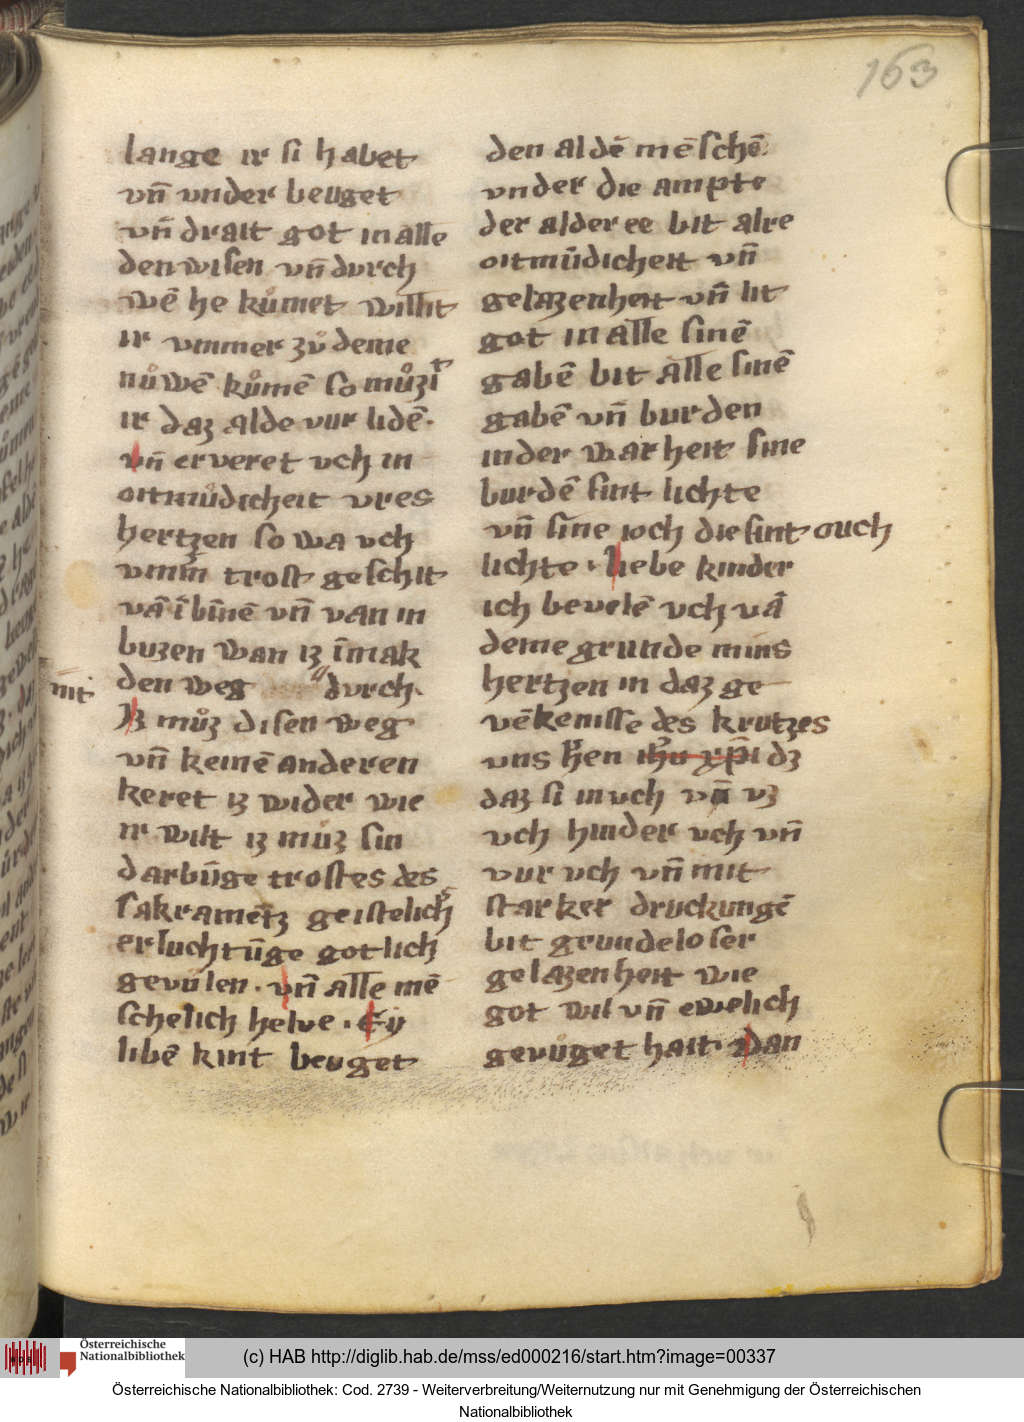 163
lange ir si habet
vn̄ vnder beuget
vn̄ drait got in alle
den wisen vn̄ durch
wē he kůmet willit
ir vmmer zů deme
nůwē kůmē so můzit
ir daz alde vur lidē.
vn̄ erveret vch in
oitmůdicheit vres
hertzen so wa vch
vmm̄ trost geschit
vā ī bīnē vn̄ van in
buzen wan iz īmak
mit
den weg durch.
Iz můz disen weg
vn̄ keinē anderen
keret iz wider wie
ir wilt iz můz sin
darbūge trostes des
sakramētz geistelich̾
erluchtūge gotlich
gevůlen. vn̄ alle mē
schelich helve. Ey
libē kint beuget
den aldē mēschē
vnder die ampte
der alder ee bit alre
oitmůdicheit vn̄
gelazenheit vn̄ lit
got in alle sinē
gabē bit alle sinē
gabē vn̄ burden
in der warheit sine
burdē sint lichte
vn̄ sine ioch die sint ouch
lichte. liebe kinder
ich bevelē vch vā
deme grunde mins
hertzen in daz ge
vēkenisse des krutzes
vns h̾en ih̄u xp̄i dz
daz si in vch vn̄ vz
vch hinder vch vn̄
vur vch vn̄ mit
starker druckungē
bit grundeloser
gelazenheit wie
got wil vn̄ ewelich
gevůget hait. Dan
Österreichische
Nationalbibliothek
(c) HAB http://diglib.hab.de/mss/ed000216/start.htm?image=00337
Österreichische Nationalbibliothek: Cod. 2739 - Weiterverbreitung/Weiternutzung nur mit Genehmigung der Österreichischen
Nationalbibliothek